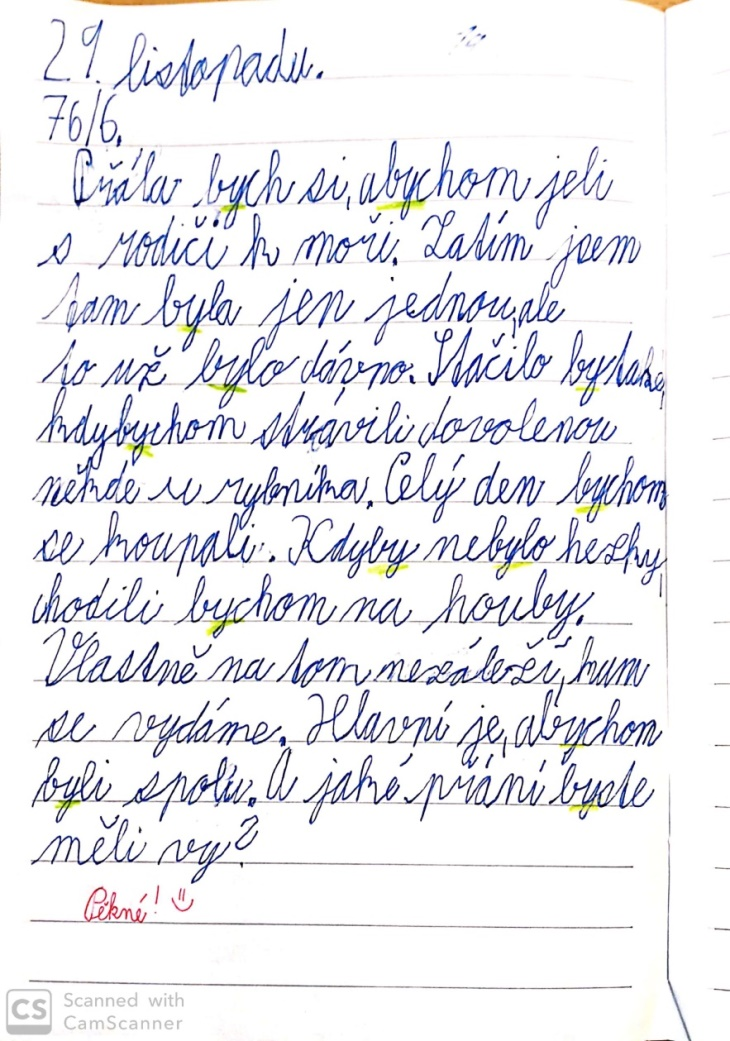 29. listopadu.
76/6.
Přála bych si, abychom jeli
s rodiči k moři. Zatím jsem
tam byla jen jednou, ale
to už bylo dávno. Stačilo by také,
kdybychom strávili dovolenou
někde u rybníka. Celý den bychom
se koupali. Kdyby nebylo hezky,
chodili bychom na houby.
Vlastně na tom nezáleží, kam
se vydáme. Hlavní je, abychom
byli spolu. A jaké přání byste
měli vy?
Pěkné!
CS Scanned with
CamScanner